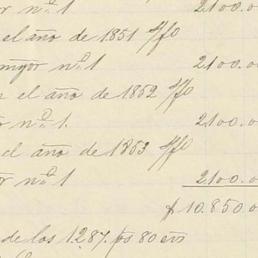 n.º 1 2100.0
el año de 1851 
mayor n.º 1 2100.0
el año de 1852
n.º 1. 2100.0
el año de 1853
n.º 1 2100.0
$ 10.850.0
de los 1.287. ps 80